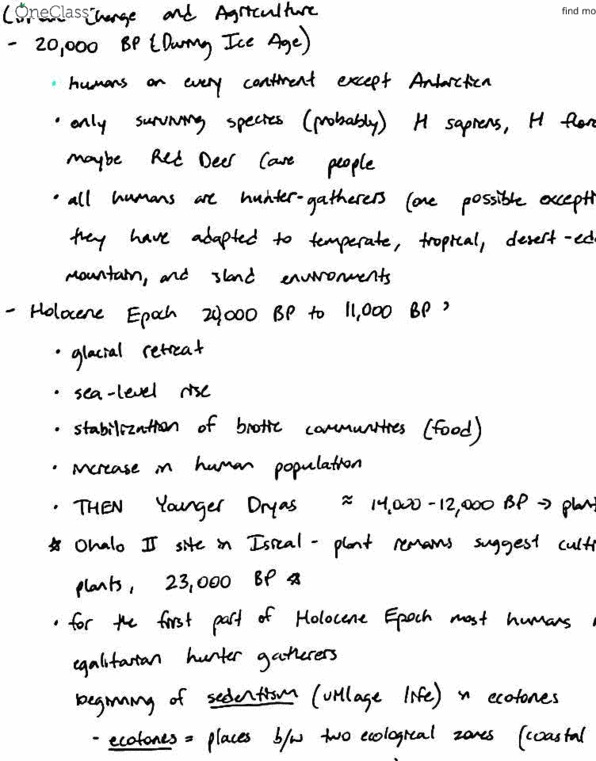 OneClass
find mo
Change and Agriculture
- 20,000 BP (During Ice Age)
• humans on every continent except Antarctica
• only surviving species (probably) H sapiens, H flore
maybe Red Deer Cave people
• all humans are hunter-gatherers (one possible excepti
they have adapted to temperate, tropical, desert-ed
mountain, and island environments
- Holocene Epoch 20,000 BP to 11,000 BP
• glacial retreat
• sea-level rise
• stabilization of biotic communities (food)
• increase in human population
• THEN Younger Dryas ≈ 14,000-12,000 BP → plant
☆ Ohalo II site in Isreal - plant remains suggest culti
plants, 23,000 BP ☆
• for the first part of Holocene Epoch most humans
egalitarian hunter gatherers
beginning of sedentism (village life) in ecotones
- ecotones = places b/w two ecological zones (coastal